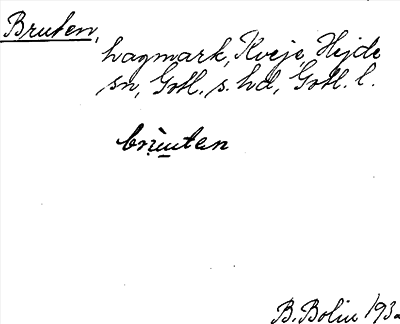 Bruten,
hagmark, Kveje, Hejde
sn, Gotl. s. hd, Gotl. l.
brùuten
B. Bolin 193